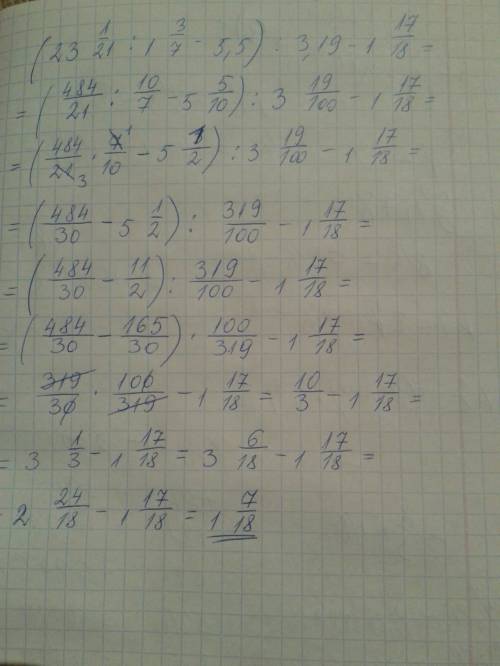 (23 1/21 : 1 3/7 - 5,5) : 3,19 - 1 17/18 =
= (484/21 : 10/7 - 5 5/10) : 3 19/100 - 1 17/18 =
= (484/21 3 · 7 1/10 - 5 1/2) : 3 19/100 - 1 17/18 =
= (484/30 - 5 1/2) : 319/100 - 1 17/18 =
= (484/30 - 11/2) : 319/100 - 1 17/18 =
= (484/30 - 165/30) · 100/319 - 1 17/18 =
= 319/30 · 100/319 - 1 17/18 = 10/3 - 1 17/18 =
= 3 1/3 - 1 17/18 = 3 6/18 - 1 17/18 =
- 2 24/18 - 1 17/18 = 1 7/18